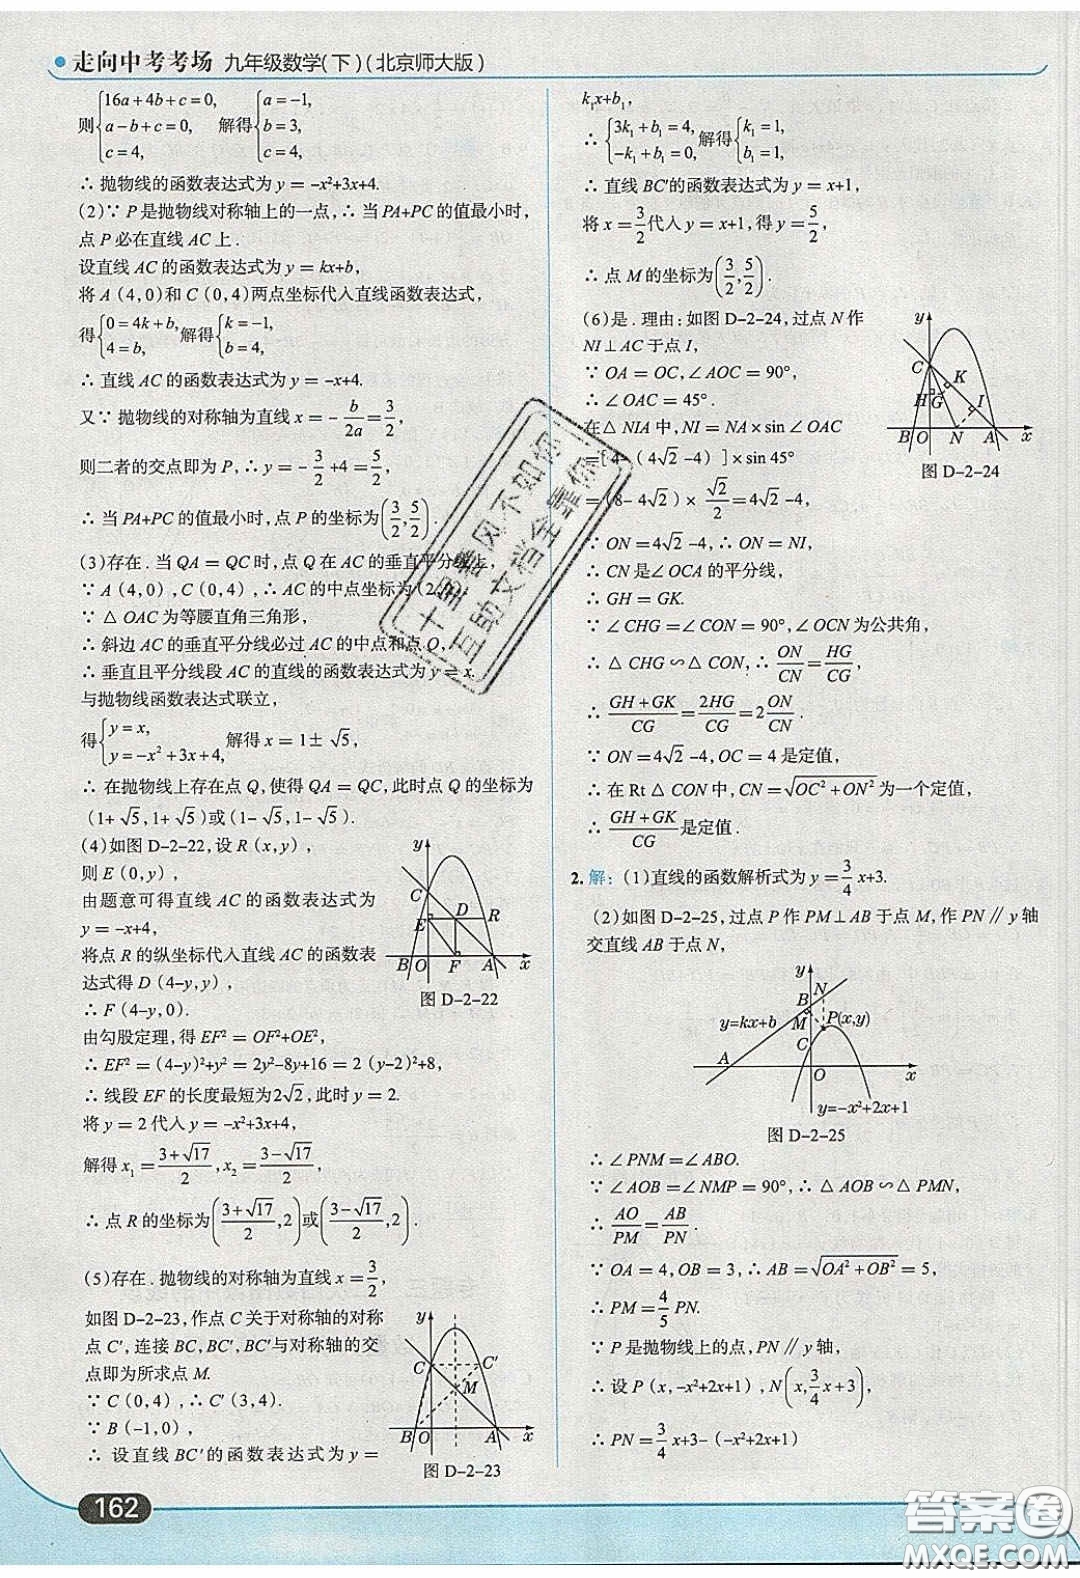 走向中考考场 九年级数学(下)(北京师大版)
则{16a+4b+c=0, a-b+c=0, c=4, 解得{a=-1, b=3, c=4,
∴ 抛物线的函数表达式为 y = -x²+3x+4.
(2)∵ P 是抛物线对称轴上的一点,∴ 当 PA+PC 的值最小时,
点 P 必在直线 AC 上.
设直线 AC 的函数表达式为 y = kx+b,
将 A (4,0)和 C (0,4)两点坐标代入直线函数表达式,
得{0=4k+b, 4=b, 解得{k=-1, b=4,
∴ 直线 AC 的函数表达式为 y = -x+4.
又∵ 抛物线的对称轴为直线 x = -b/2a = 3/2,
则二者的交点即为 P,∴ y = -3/2+4 = 5/2,
∴ 当 PA+PC 的值最小时,点 P 的坐标为(3/2,5/2).
(3)存在. 当 QA = QC 时,点 Q 在 AC 的垂直平分线上,
∵ A (4,0),C (0,4),∴ AC 的中点坐标为(2,2).
∵ △ OAC 为等腰直角三角形,
∴ 斜边 AC 的垂直平分线必过 AC 的中点和点 O,
∴ 垂直且平分线段 AC 的直线的函数表达式为 y = x.
与抛物线函数表达式联立,
得{y=x, y=-x²+3x+4, 解得 x = 1±√5,
∴ 在抛物线上存在点 Q,使得 QA = QC,此时点 Q 的坐标为
(1+√5,1+√5)或(1-√5,1-√5).
(4)如图 D-2-22,设 R (x,y),
则 E (0,y),
由题意可得直线 AC 的函数表达式为
y = -x+4,
将点 R 的纵坐标代入直线 AC 的函数表
达式得 D (4-y,y),
∴ F (4-y,0).
y C E D R B O F A x
图 D-2-22
由勾股定理,得 EF² = OF²+OE²,
∴ EF² = (4-y)²+y² = 2y²-8y+16 = 2 (y-2)²+8,
∴ 线段 EF 的长度最短为2√2,此时 y = 2.
将 y = 2 代入 y = -x²+3x+4,
解得 x₁ = (3+√17)/2, x₂ = (3-√17)/2,
∴ 点 R 的坐标为((3+√17)/2,2)或((3-√17)/2,2).
(5)存在. 抛物线的对称轴为直线 x = 3/2,
如图 D-2-23,作点 C 关于对称轴的对称
点 C′,连接 BC,BC′,BC′与对称轴的交
点即为所求点 M.
∵ C (0,4),∴ C′(3,4).
∵ B (-1,0),
∴ 设直线 BC′的函数表达式为 y =
y C C′ M B O A x
图 D-2-23
k₁x+b₁,
∴ {3k₁+b₁=4, -k₁+b₁=0, 解得{k₁=1, b₁=1,
∴ 直线 BC′的函数表达式为 y = x+1,
将 x = 3/2 代入 y = x+1,得 y = 5/2,
∴ 点 M 的坐标为(3/2,5/2).
(6)是. 理由:如图 D-2-24,过点 N 作
NI⊥AC 于点 I,
∵ OA = OC,∠AOC = 90°,
∴ ∠OAC = 45°.
在△ NIA 中,NI = NA×sin ∠OAC
= [4-(4√2-4)]×sin 45°
= (8-4√2)×√2/2 = 4√2-4,
y C H G K I B O N A x
图 D-2-24
∵ ON = 4√2-4,∴ ON = NI,
∴ CN 是∠OCA 的平分线,
∴ GH = GK.
∵ ∠CHG = ∠CON = 90°,∠OCN 为公共角,
∴ △ CHG ∽△ CON,∴ ON/CN = HG/CG,
∴ (GH+GK)/CG = 2HG/CG = 2 ON/CN.
∵ ON = 4√2-4,OC = 4 是定值,
∴ 在 Rt △ CON 中,CN = √(OC²+ON²) 为一个定值,
∴ (GH+GK)/CG 是定值.
2. 解:(1)直线的函数解析式为 y = 3/4 x+3.
(2)如图 D-2-25,过点 P 作 PM⊥AB 于点 M,作 PN∥y 轴
交直线 AB 于点 N,
y B N M P(x,y) y=kx+b C A O x y=-x²+2x+1
图 D-2-25
∴ ∠PNM = ∠ABO.
∵ ∠AOB = ∠NMP = 90°,∴ △ AOB ∽△ PMN,
∴ AO/PM = AB/PN.
∵ OA = 4,OB = 3,∴ AB = √(OA²+OB²) = 5,
∴ PM = 4/5 PN.
∵ P 是抛物线上的点,PN∥y 轴,
∴ 设 P (x,-x²+2x+1),N(x,3/4 x+3),
∴ PN = 3/4 x+3-(-x²+2x+1)
十里春风不如你
互助文档全靠你
162
答案圈
MXQE.COM